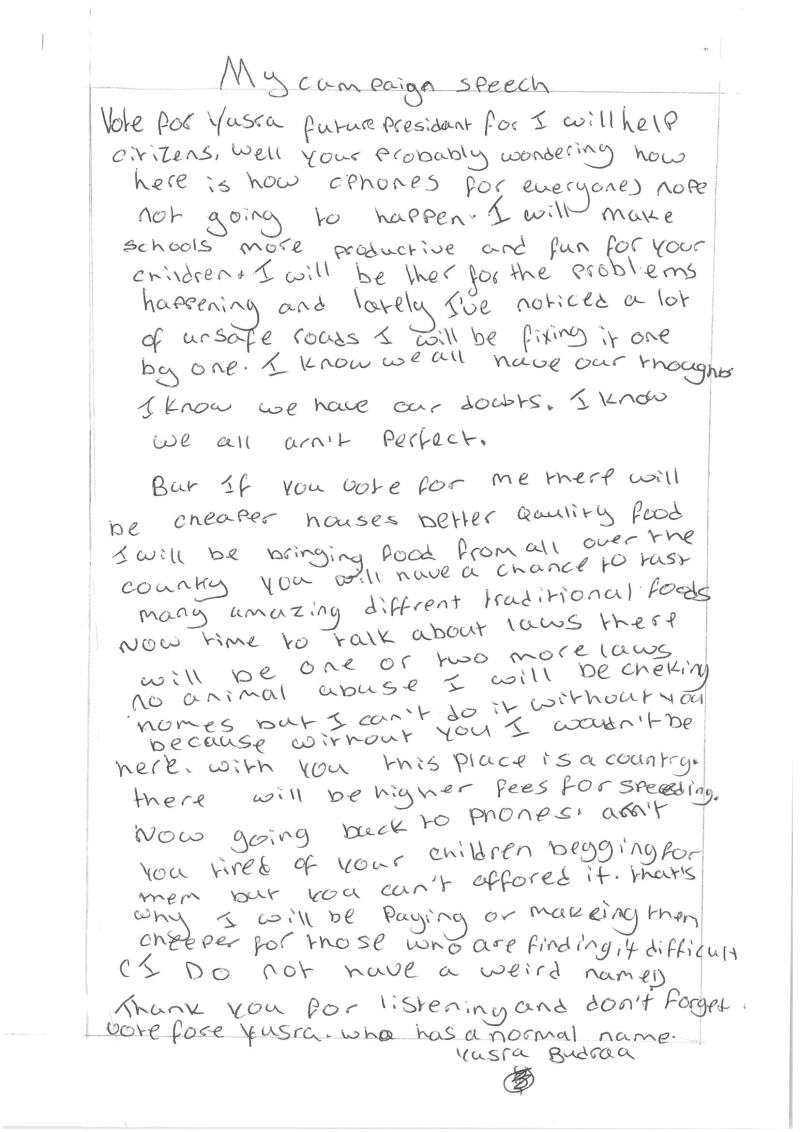 My campaign speech
Vote for Yusra future president for I will help
citizens. Well your probably wondering how
here is how (phones for everyone) nope
not going to happen. I will make
schools more productive and fun for your
children. I will be ther for the problems
happening and lately I've noticed a lot
of unsafe roads I will be fixing it one
by one. I know we all have our thoughts
I know we have our doubts. I know
we all arn't perfect.
But If you vote for me there will
be cheaper houses better qaulity food
I will be bringing food from all over the
country you will have a chance to tast
many amazing diffrent traditional foods
Now time to talk about laws there
will be one or two more laws
no animal abuse I will be cheking
homes but I can't do it without you
because without you I wouldn't be
here. with you this place is a country.
there will be higher fees for speeding.
Now going back to phones. arn't
you tired of your children begging for
them but you can't affored it. that's
why I will be paying or makeing them
cheeper for those who are finding it difficult
(I Do not have a weird name)
Thank you for listening and don't forget.
vote fore Yusra. who has a normal name.
Yusra Budraa